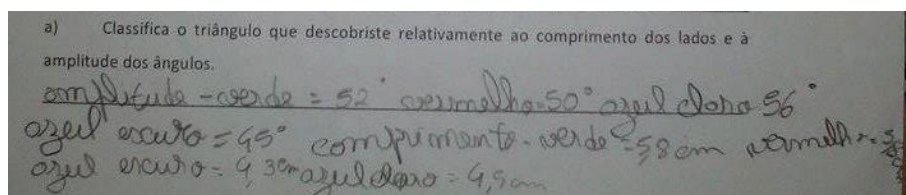 a) Classifica o triângulo que descobriste relativamente ao comprimento dos lados e à
amplitude dos ângulos.
amplitude - verde = 52° vermelho = 50° azul claro 56°
azul escuro = 45° comprimento - verde = 5,8 cm vermelho =
azul escuro = 4,3cm azul claro = 4,5cm